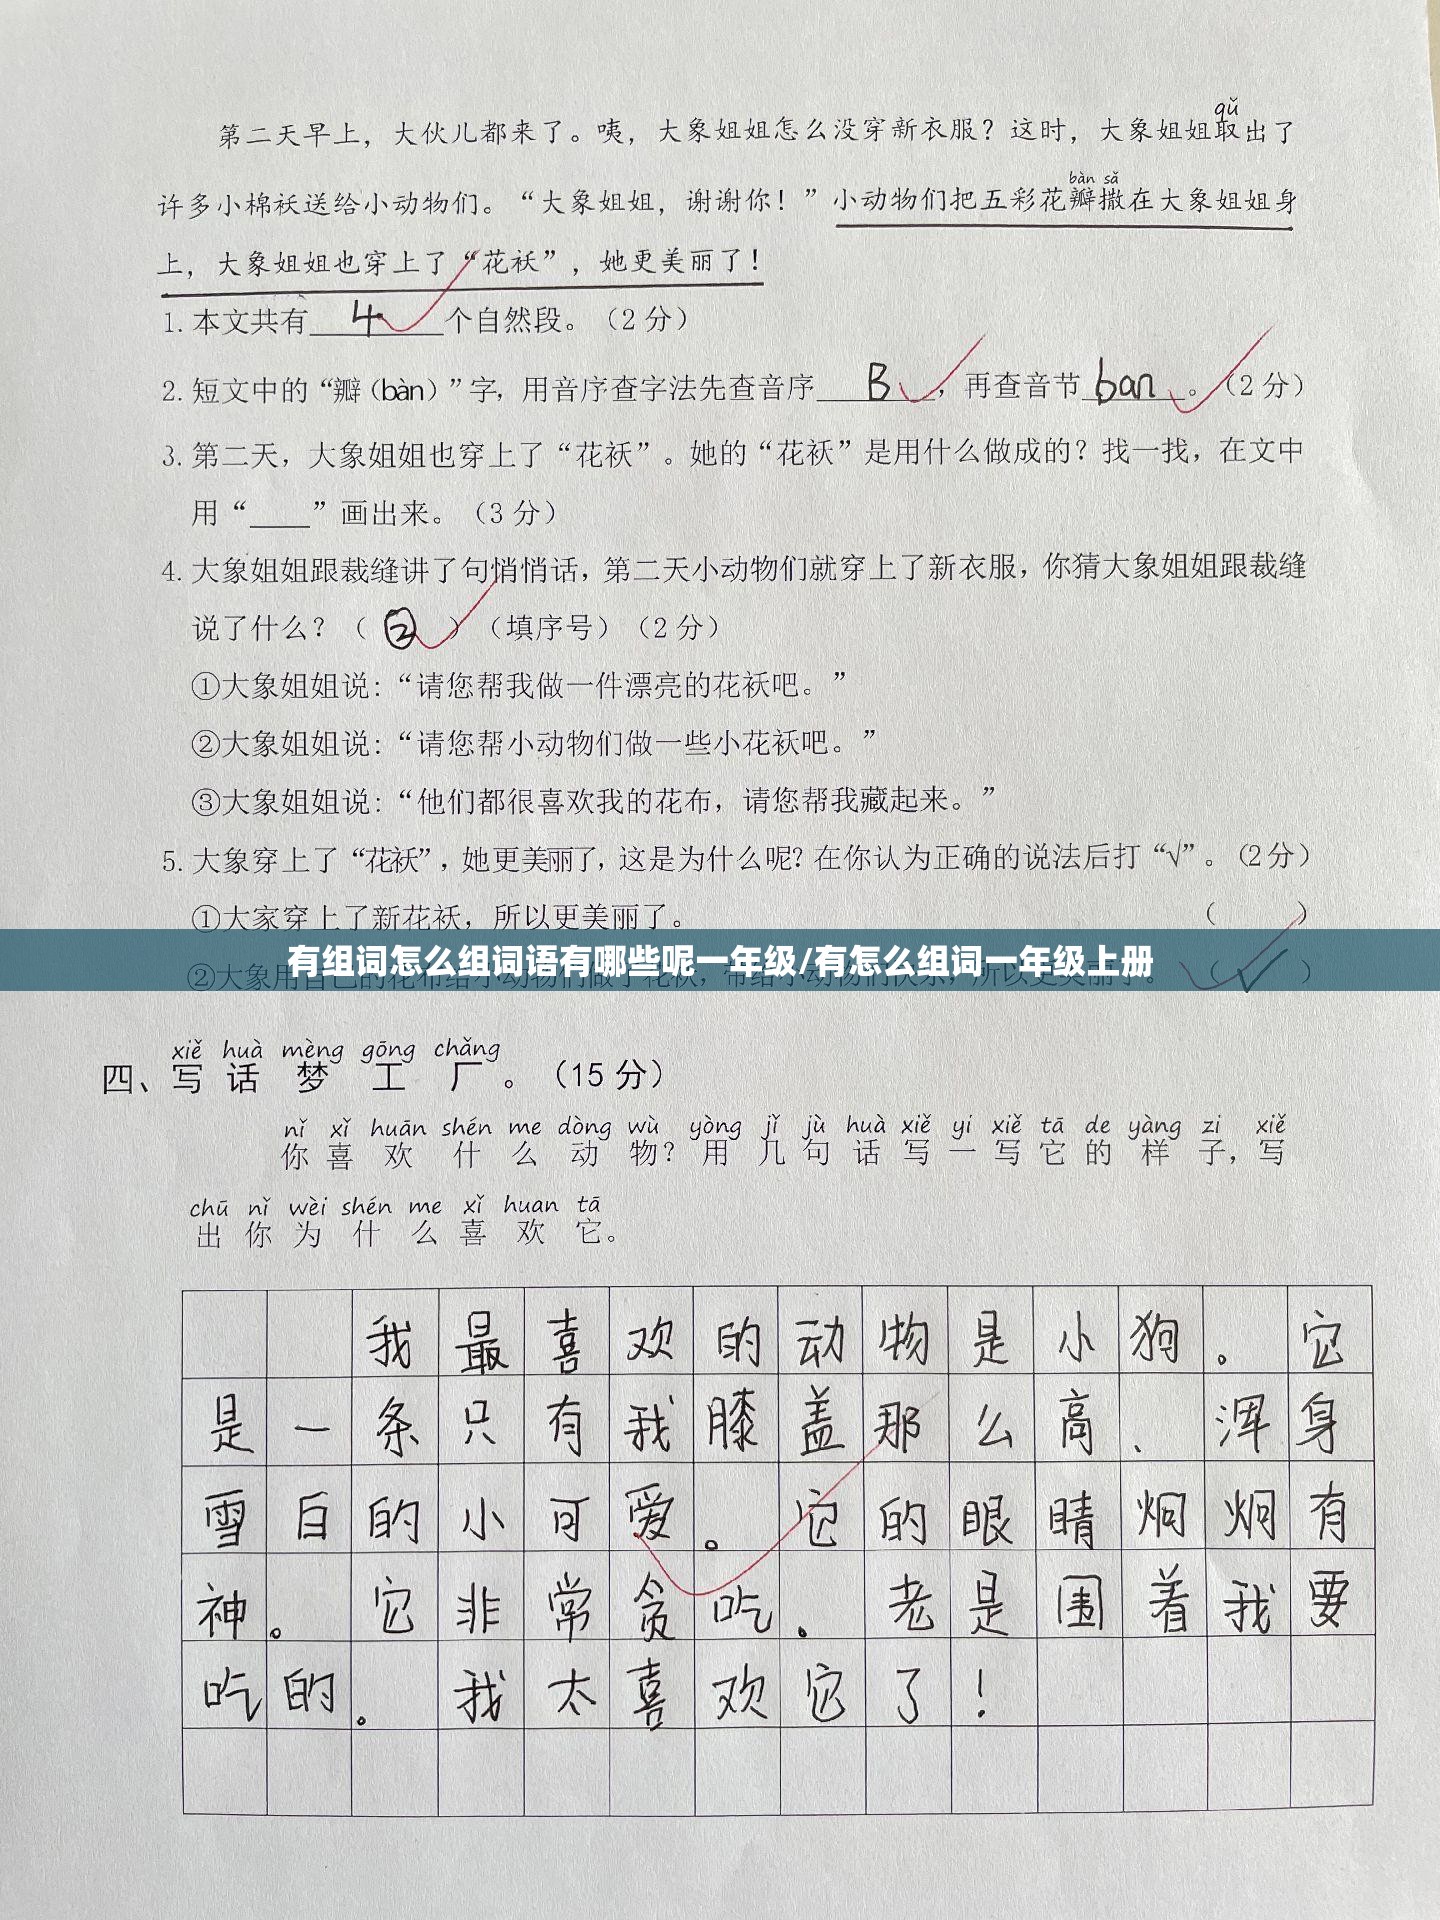 qǔ
第二天早上，大伙儿都来了。咦，大象姐姐怎么没穿新衣服？这时，大象姐姐取出了
bàn sǎ
许多小棉袄送给小动物们。“大象姐姐，谢谢你！”小动物们把五彩花瓣撒在大象姐姐身
上，大象姐姐也穿上了“花袄”，她更美丽了！
1. 本文共有 4 个自然段。（2 分）
2. 短文中的“瓣（bàn）”字，用音序查字法先查音序 B ，再查音节 ban 。（2 分）
3. 第二天，大象姐姐也穿上了“花袄”。她的“花袄”是用什么做成的？找一找，在文中
用“____”画出来。（3 分）
4. 大象姐姐跟裁缝讲了句悄悄话，第二天小动物们就穿上了新衣服，你猜大象姐姐跟裁缝
说了什么？（ ② ）（填序号）（2 分）
①大象姐姐说：“请您帮我做一件漂亮的花袄吧。”
②大象姐姐说：“请您帮小动物们做一些小花袄吧。”
③大象姐姐说：“他们都很喜欢我的花布，请您帮我藏起来。”
5. 大象穿上了“花袄”，她更美丽了，这是为什么呢？在你认为正确的说法后打“√”。（2 分）
①大家穿上了新花袄，所以更美丽了。 （ ）
有组词怎么组词语有哪些呢一年级/有怎么组词一年级上册
②大象用自己的花布给小动物们做了花袄，带给小动物们快乐，所以更美丽了。 （ √ ）
xiě huà mèng gōng chǎng
四、写 话 梦 工 厂 。（15 分）
nǐ xǐ huān shén me dòng wù yòng jǐ jù huà xiě yi xiě tā de yàng zi xiě
你 喜 欢 什 么 动 物？ 用 几 句 话 写 一 写 它 的 样 子，写
chū nǐ wèi shén me xǐ huan tā
出 你 为 什 么 喜 欢 它。
我最喜欢的动物是小狗。它
是一条只有我膝盖那么高、浑身
雪白的小可爱。它的眼睛炯炯有
神。它非常贪吃。老是围着我要
吃的。我太喜欢它了！